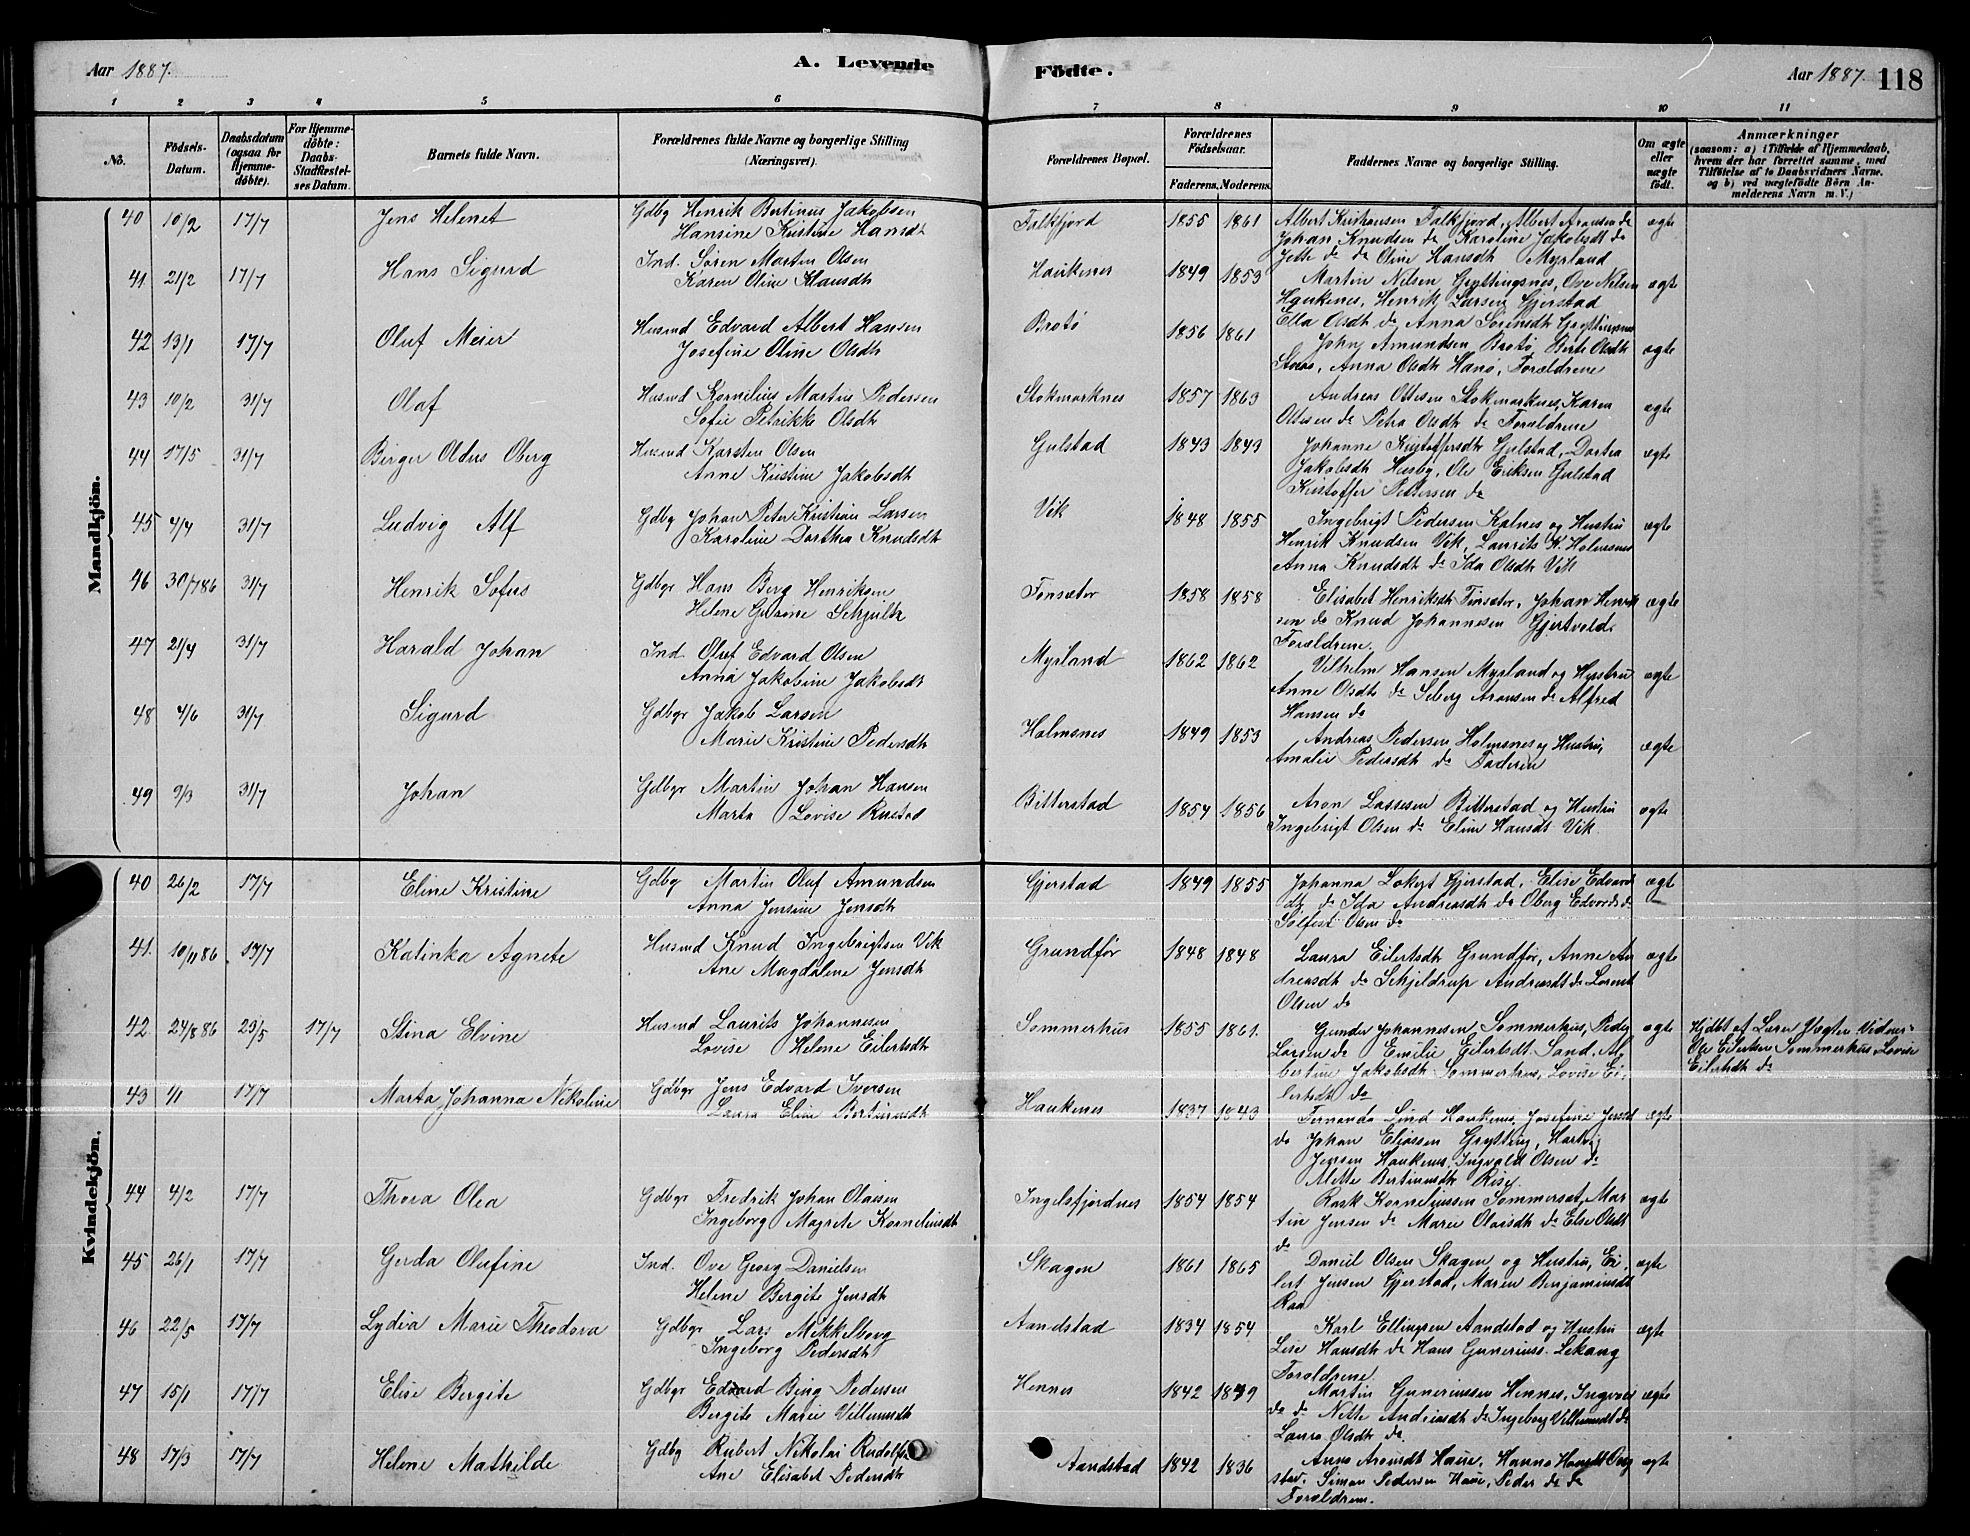 Aar 1887.
A. Levende
Födte.
Aar 1887. 118
1 2 3 4 5 6 7 8 9 10 11
No.
Födsels-Datum.
Daabsdatum (ogsaa for Hjemme-døbte).
For Hjemme-døbte: Daabs-Stadfæstel-ses Datum.
Barnets fulde Navn.
Forældrenes fulde Navne og borgerlige Stilling (Næringsvei).
Forældrenes Bopæl.
Forældrenes Födselsaar.
Faderens. Moderens.
Faddernes Navne og borgerlige Stilling.
Om ægte eller uægte födt.
Anmærkninger
(saasom: a) i Tilfælde af Hjemmedaab, hvem der har forrettet samme, med Tilföielse af to Daabsvidners Navne. og b) ved uægtefödte Börn An-melderens Navn m. V.)
Mandkjön.
40 10/2 17/7 Jens Helenet Gdbg Henrik Bertinus Jakobsen Falkfjord 1855 1861 Albert Kristiansen Falkfjord, Albert Aronsen do ægte
Hansine Kristine Hansdt Johan Knudsen do Karoline Jakobsdt do
Jette do do Oline Hansdt Myrland
41 21/2 17/7 Hans Sigurd Ind. Søren Martin Olsen Haukenes 1849 1853 Martin Nilsen Gryttingsnes, Ove Nilsen ægte
Karen Oline Klausdt Haukenes, Henrik Larsen Gjerstad
Ella Olsdt do Anna Sørensdt Gryttingsnes
42 13/1 17/7 Oluf Meier Husmd Edvard Albert Hansen Brotø 1856 1861 Johan Amundsen Brotø, Berte Olsdt ægte
Josefine Oline Olsdt Anna Olsdt Hanø, Forældrene
43 10/2 31/7 Olaf Husmd Kornelius Martin Pedersen Stokmarknes 1857 1863 Andreas Ottesen Stokmarknes, Karen ægte
Sofie Petrikke Olsdt Ottesen do Petra Olsdt do Forældrene
44 17/5 31/7 Birger Oldus Oberg Husmd Karsten Olsen Gulstad 1843 1843 Johanne Kristoffersdt Gulstad, Dortea ægte
Anne Kristine Jakobsdt Jakobsdt Husby, Ole Eriksen Gulstad
Kristoffer Pettersen do
45 4/4 31/7 Ludvig Alf Gdbg Johan Peter Kristian Larsen Vik 1848 1855 Ingebrigt Pedersen Kalnes og Hustru ægte
Karoline Dorthea Knudsdt Henrik Knudsen Vik, Laurits K. Holmsnes
Anna Knudsdt do Ida Olsdt Vik
46 30/7 86 31/7 Henrik Sofus Gdbgr Hans Berg Henriksen Fonsæter 1858 1858 Elisabet Henriksdt Finsæter, Johan Henrik ægte
Helene Schjelde sen do Knud Johannesen Gjertvold.
Forældrene.
47 21/4 31/7 Harald Johan Ind Oluf Edvard Olsen Myrland 1862 1862 Vilhelm Hansen Myrland og Hustru ægte
Anna Jakobine Jakobsdt Anne Olsdt do Seberg Aronsen do Alfred
Hansen do
48 4/6 31/7 Sigurd Gdbgr Jakob Larsen Holmsnes 1849 1853 Andreas Pedersen Holmsnes og Hustru, ægte
Marie Kristine Pedersdt Amalie Pedersdt do Faderen
49 9/3 31/7 Johan Gdbgr Martin Johan Hansen Bitterstad 1854 1856 Aron Lassesen Bitterstad og Hustru ægte
Marta Lovise Rustad Ingebrigt Olsen do Eline Hansdt Vik.
Kvindekjön.
40 26/2 17/7 Eline Kristine Gdbg Martin Oluf Amundsen Gjerstad 1849 1855 Johanna Lokert Gjerstad, Elise Edvard ægt
Anna Jensine Jensdt dt do Ida Andreasdt do Oberg Edvards do
Sölfest Olsen do
41. 10/11 86. 17/7 Katinka Agnete Husmd Knud Ingebrigtsen Vik Grundfør 1848 1848 Laura Eilertsdt Grundfør, Anne An ægte
Ane Magdalene Jensdt dreasdt do Schjeldrup Andreasdt do Lorents
Olsen do
42. 24/8 86 23/5 17/7 Stina Elvine Husmd Laurits Johannesen Sommerhus 1855 1861. Gunder Johannesen Sommerhus, Peder ægte Hjdbt af Lærer Vogten Vidner-
Lovise Helene Eilertsdt Larsen do Emilie Eilertsdt Sand, Al Ole Eilertsen Sommerhus, Lovise
bertine Jakobsdt Sommerhus, Lovise Ei- Eilertsdt do
lertsdt do
43 1/1 17/7 Marta Johanna Nikoline Gdbgr Jens Edvard Iversen Haukenes 1837 1843 Fernanda Lind Haukenes, Josefine Jensdt ægte
Laura Eline Bertinusdt do Johan Eliassen Grytting, Hartvig
Jensen Haukenes, Ingvald Olsen do
Alette Bertinusdt Risø.
44 4/2 17/7 Thora Olea Gdbgr Fredrik Johan Olaisen Ingelsfjordnes 1854 1854 Rask Korneliussen Sommerset, Mar ægte
Ingeborg Magrete Korneliusdt tin Jensen do Marie Olaisdt do Else Olsdt
do
45 26/1 17/7 Gerda Olufine Ind. Ove Georg Danielsen Skagen 1861 1865 Daniel Olsen Skagen og Hustru, Ei ægte
Helene Bergite Jensdt lert Jensen Gjerstad, Maren Benjaminsdt
Raa
46 22/5 17/7 Lydia Marie Theodora Gdbgr Lars Mekkelborg Aandstad 1834 1854 Karl Ellingsen Aandstad og Hustru ægte
Ingeborg Pedersdt Lise Hansdt do Hans Gunerius. Lekang
Forældrene.
47 15/1 17/7 Elise Bergite Gdbgr Edvard Bing Pedersen Hennes 1842 1849 Martin Guneriussen Hennes, Ingvold ægte
Bergite Marie Villumsdt do do Nette Andreasdt do Ingeborg Villumsdt do
Laura Olsdt do
48 17/3 17/7 Helene Mathilde Gdbg Rubert Nikolai Rudolfs Aandstad 1842 1836 Anna Aronsdt Haue, Hanna Hansdt ægt
Ane Elisabet Pedersdt Simon Pedersen Haue, Peder do do
Forældrene.